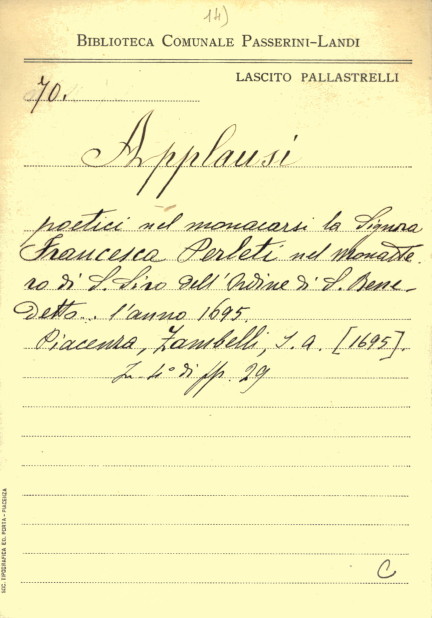 14)
BIBLIOTECA COMUNALE PASSERINI-LANDI
LASCITO PALLASTRELLI
70.
Applausi
poetici nel monacarsi la Signora
Francesca Perleti nel monaste-
ro di S. Siro dell'Ordine di S. Bene-
detto.. l'anno 1695
Piacenza, Zambelli, s. a. [1695].
In-4° di pp. 29
SOC. TIPOGRAFICA ED. PORTA - PIACENZA
C